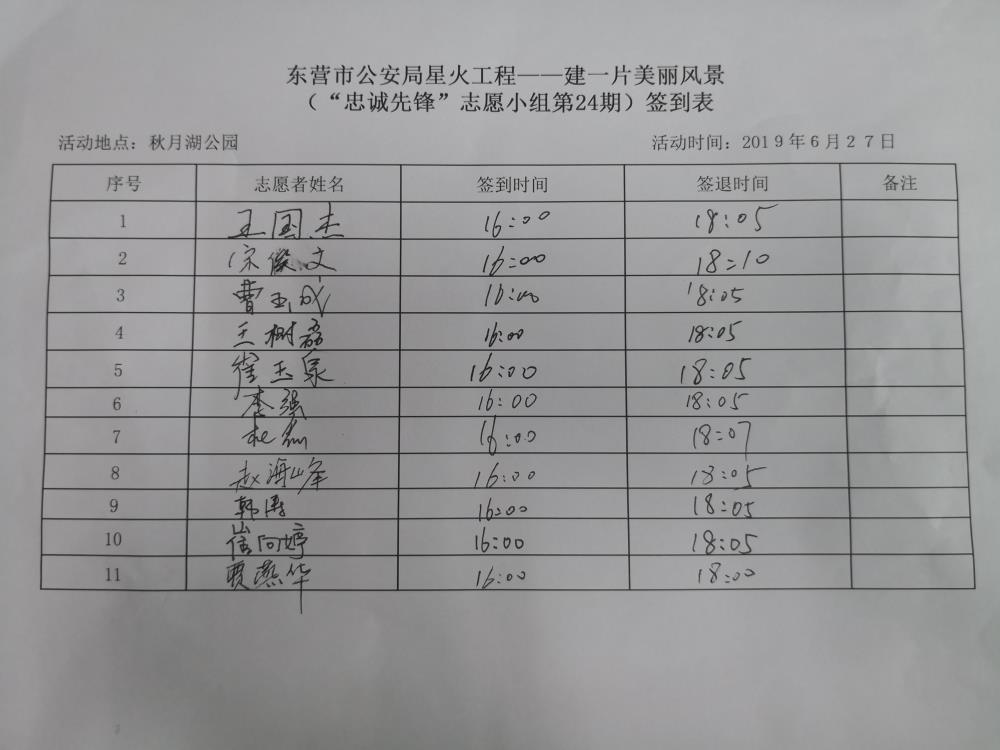 东营市公安局星火工程——建一片美丽风景
（“忠诚先锋”志愿小组第24期）签到表
活动地点：秋月湖公园 活动时间：2019年6月27日
序号 志愿者姓名 签到时间 签退时间 备注
1 王国杰 16:00 18:05
2 宋俊文 16:00 18:10
3 曹玉成 16:00 18:05
4 王树磊 16:00 18:05
5 崔玉泉 16:00 18:05
6 李强 16:00 18:05
7 16:00 18:07
8 赵海峰 16:00 18:05
9 韩涛 16:00 18:05
10 崔向婷 16:00 18:05
11 贾燕华 16:00 18:00